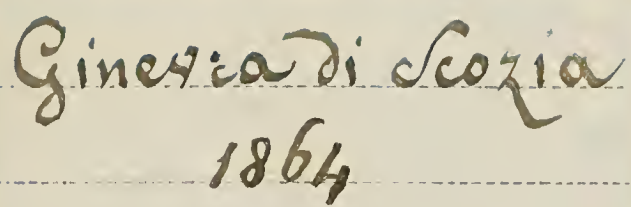 Ginevra di Scozia
1864